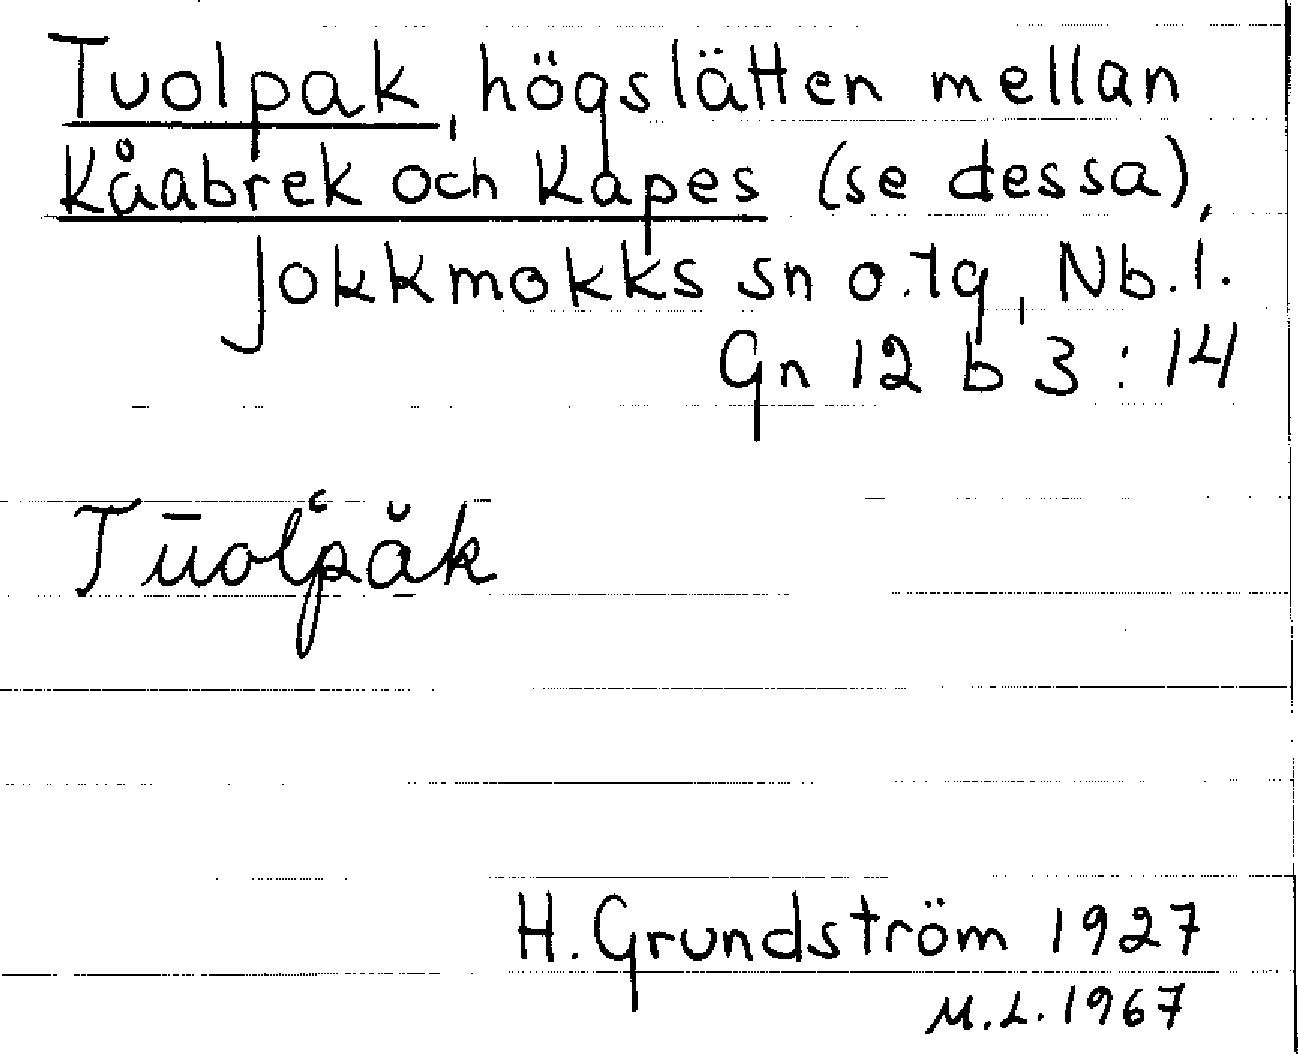 Tuolpak, högslätten mellan
Kåabrek och Kapes (se dessa),
Jokkmokks sn o. tg, Nb. l.
Gn 12 b 3 : 14
Tūolʿpăk
H. Grundström 1927
M.L. 1967